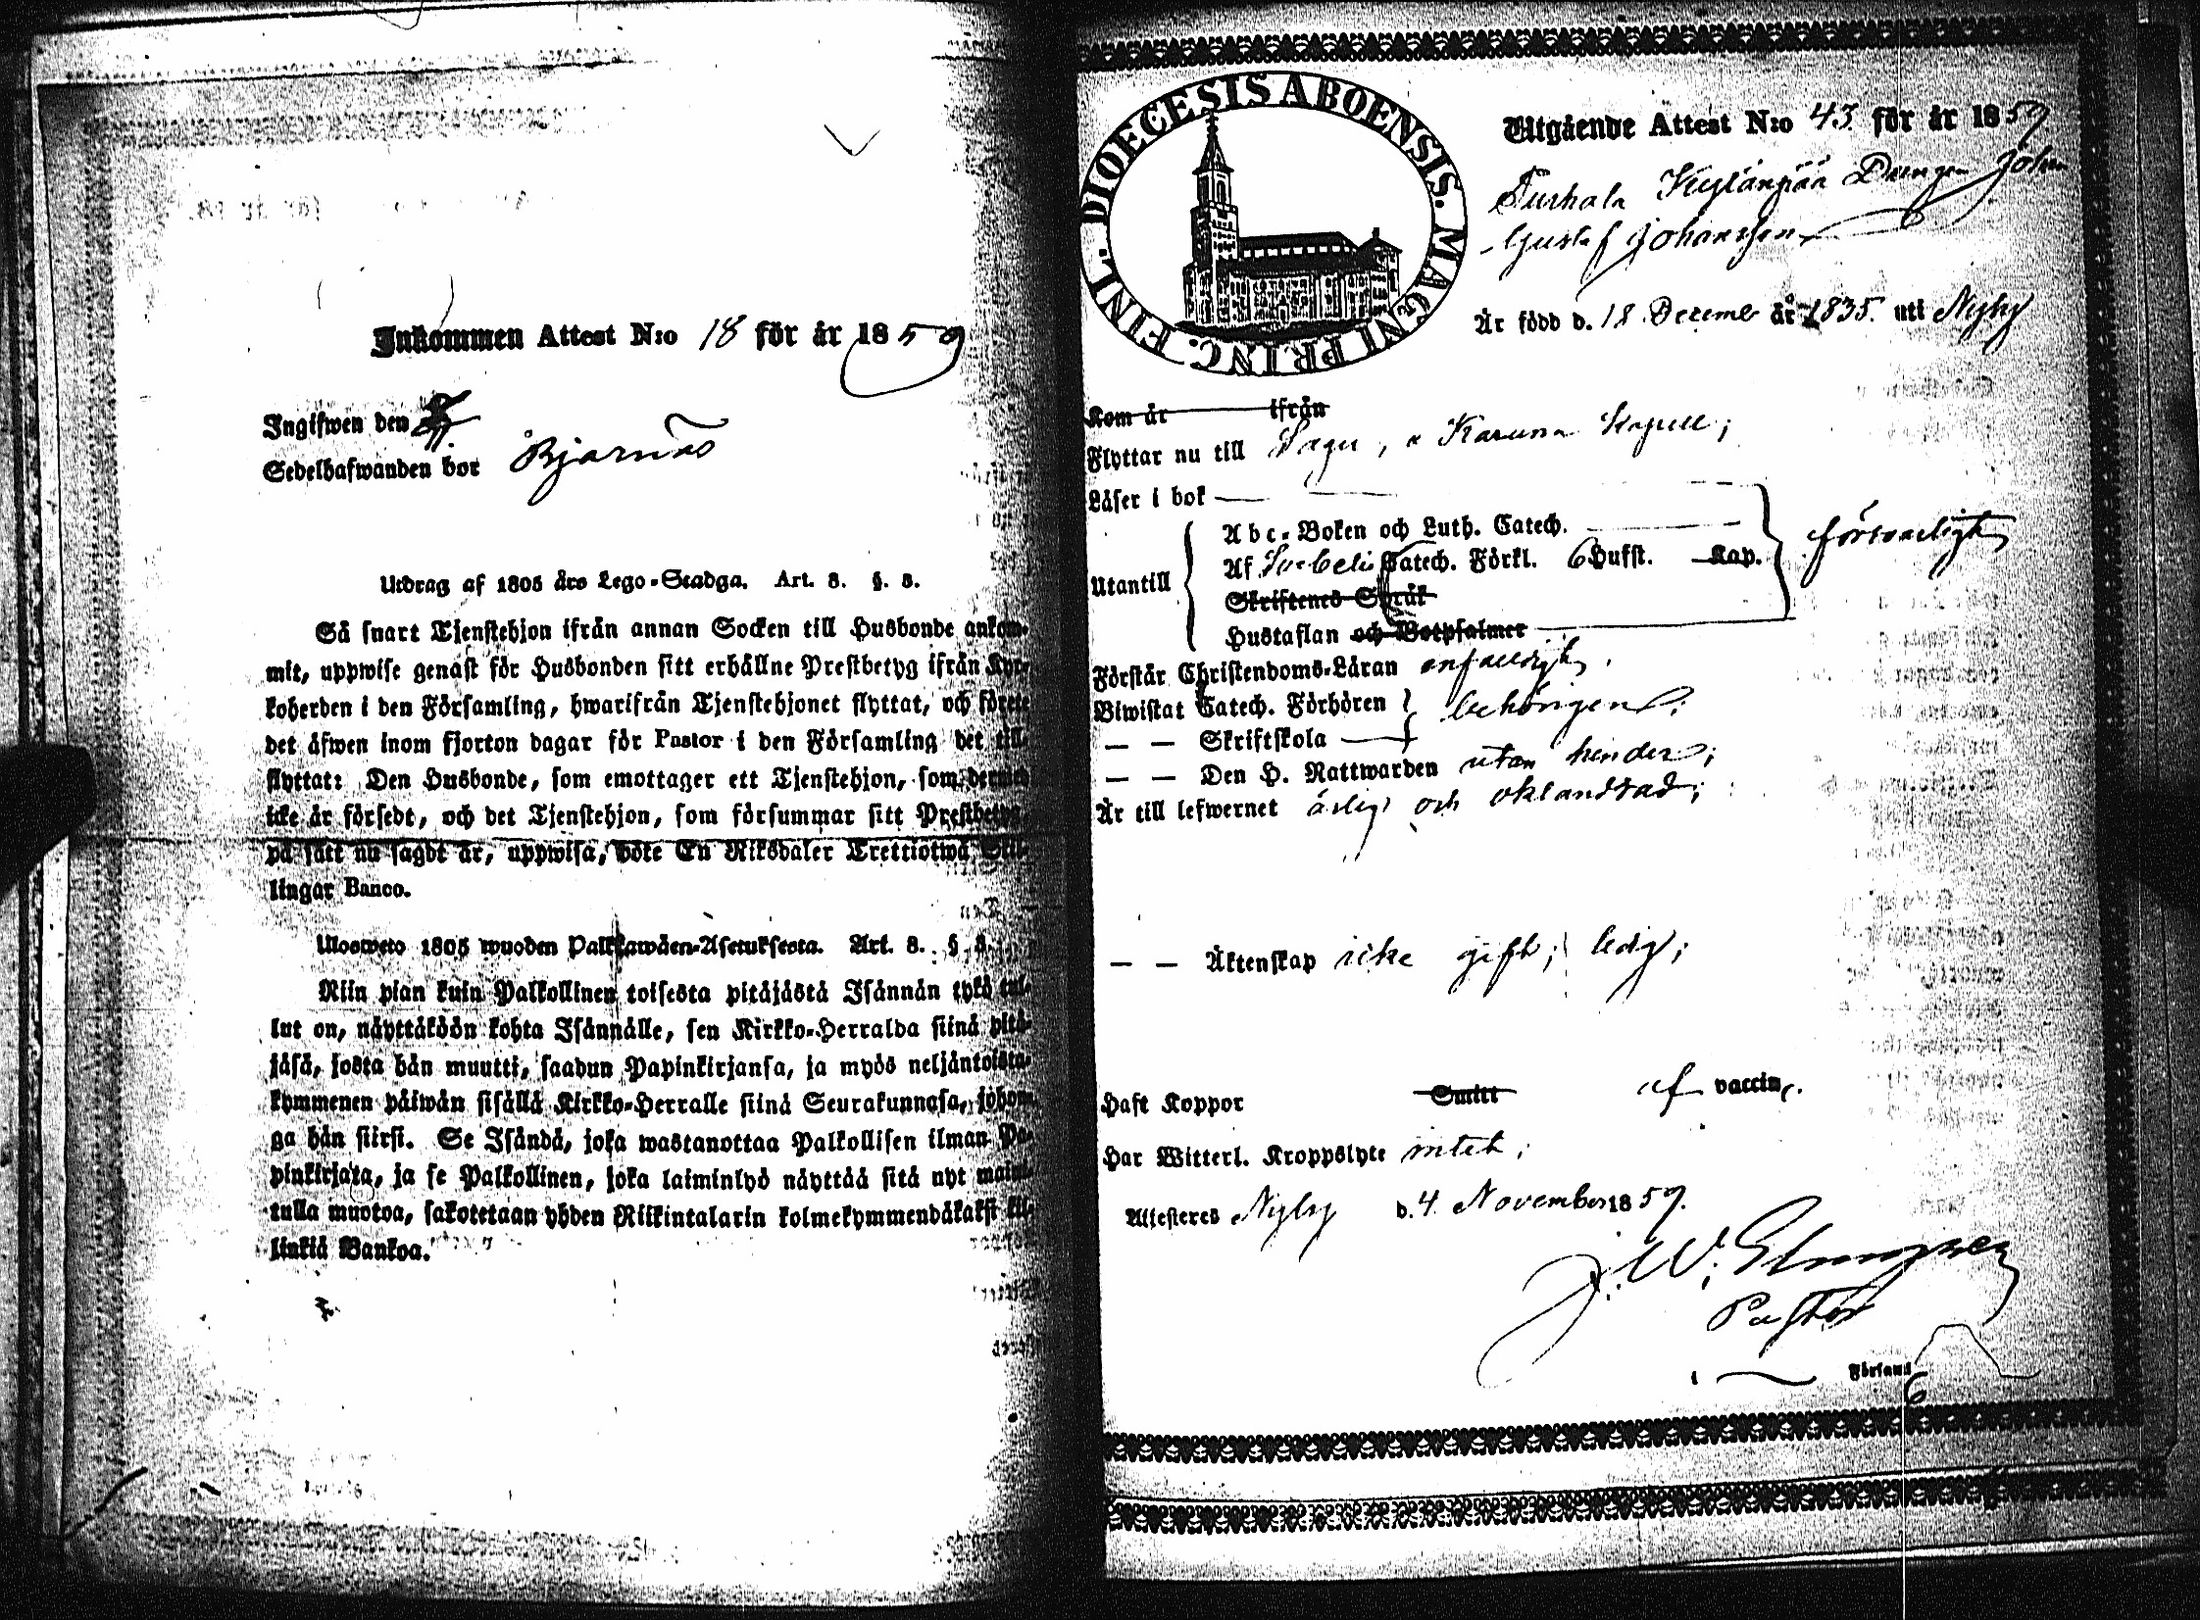 Inkommen Attest N:o 18 för år 1859
Ingifwen den
Sedelhafwanden bor Bjarnäs
Utdrag af 1805 års Lego-Stadga. Art. 8. §. 3.
Så snart Tjenstehjon ifrån annan Socken till Husbonde ankom-
mit, uppwise genast för Husbonden sitt erhållne Prestbetyg ifrån Kyr-
koherden i den Församling, hwarifrån Tjenstehjonet flyttat, och förete
det äfwen inom fjorton dagar för Pastor i den Församling det till-
flyttat: Den Husbonde, som emottager ett Tjenstehjon, som dermed
icke är försedt, och det Tjenstehjon, som försummar sitt Prestbetyg,
på sätt nu sagdt är, uppwisa, böte En Riksdaler Trettiotwå Skil-
lingar Banco.
Ulosweto 1805 wuoden Palkkawäen-Asetuksesta. Art. 8. §. 3.
Niin pian kuin Palkollinen toisesta pitäjästä Isännän tykö tul-
lut on, näyttäköön kohta Isännälle, sen Kirkko-Herralda siinä pitä-
jäsä, josta hän muutti, saadun Papinkirjansa, ja myös neljäntoista-
kymmenen päiwän sisällä Kirkko-Herralle siinä Seurakunnasa, johon-
ga hän siirsi. Se Isändä, joka wastanottaa Palkollisen ilman Pa-
pinkirjata, ja se Palkollinen, joka laiminlyö näyttää sitä nyt maini-
tulla muotoa, sakotetaan yhden Riikintalarin kolmekymmendäkaksi kil-
linkiä Bankoa.
DIOECESIS ABOENSIS. MAGNI PRINC. FINL.
Utgående Attest N:o 43 för år 1859
Turhala Kylänpää Drengen John
Gustaf Johansson
Är född d. 18 Decemb år 1835 uti Nyby
Kom år ifrån
Flyttar nu till Sagu, Karuna Kapell;
Läser i bok
Abc-Boken och Luth. Catech.
Utantill
Af Svebelii Catech. Förkl. 6 Hufst. Kap.
försvarligt
Skriftenes Språk
Hustaflan och Botpsalmer
Förstår Christendoms-Läran enfaldigt,
Biwistat Catech. Förhören
behörigen;
— — Skriftskola
— — Den H. Nattwarden utan hinder;
Är till lefwernet ärlig och oklandrad;
— — Äktenskap icke gift; ledig;
Haft Koppor Smitt af vaccin.
Har Witterl. Kroppslyte intet;
Attesteres Nyby d. 4 November 1859.
J. W.
Pastor